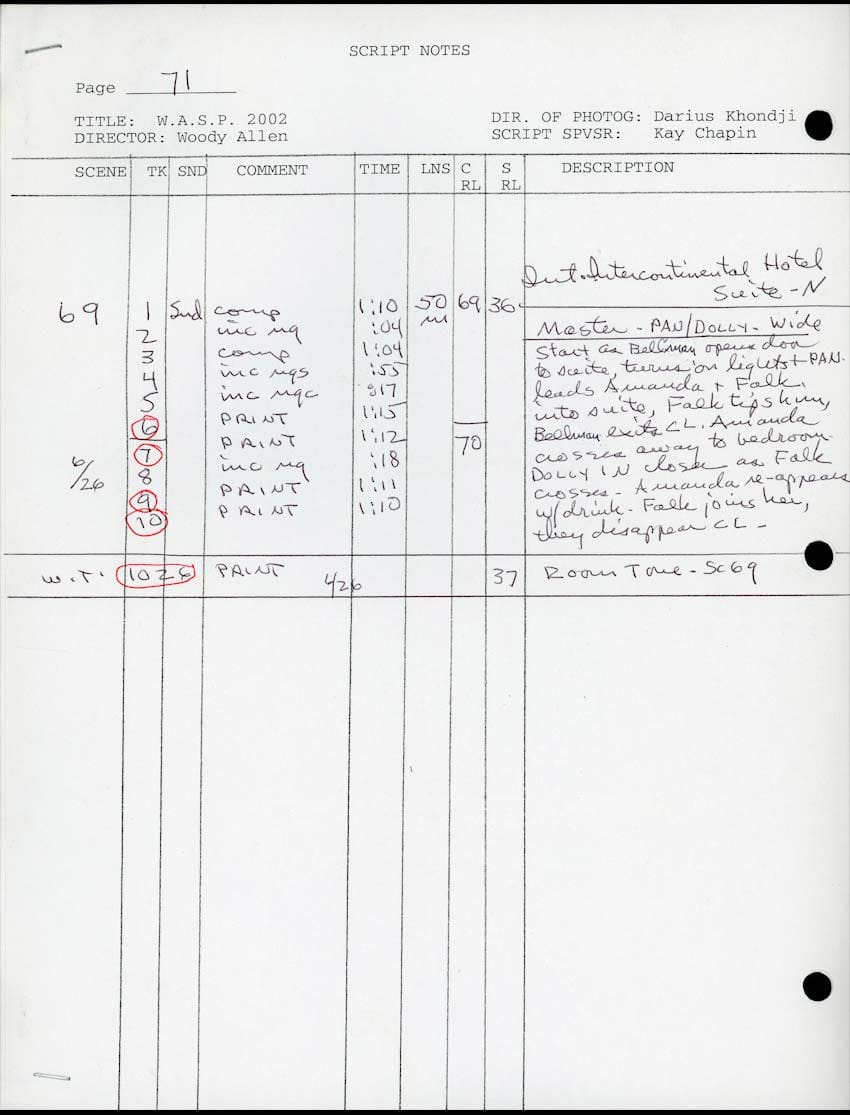 SCRIPT NOTES
Page 71
TITLE: W.A.S.P. 2002 DIR. OF PHOTOG: Darius Khondji
DIRECTOR: Woody Allen SCRIPT SPVSR: Kay Chapin
SCENE TK SND COMMENT TIME LNS C RL S RL DESCRIPTION
Int. Intercontinental Hotel
Suite - N
69 1 Snd comp 1:10 50 m 69 36
2 inc ng :04
3 comp 1:04
4 inc ngs :55
5 inc ngc :17
6 PRINT 1:15
7 PRINT 1:12 70
8 inc ng :18
9 PRINT 1:11
10 PRINT 1:10
6/26
Master - PAN/DOLLY - Wide
Start as Bellman opens door
to suite, turns on lights + PAN.
leads Amanda + Falk.
into suite, Falk tips him,
Bellman exits CL. Amanda
crosses away to bedroom.
DOLLY IN closer as Falk
crosses - Amanda re-appears
w/drink. Falk joins her,
they disappear CL -
W.T. 1026 PRINT 4/26 37 Room Tone - Sc 69